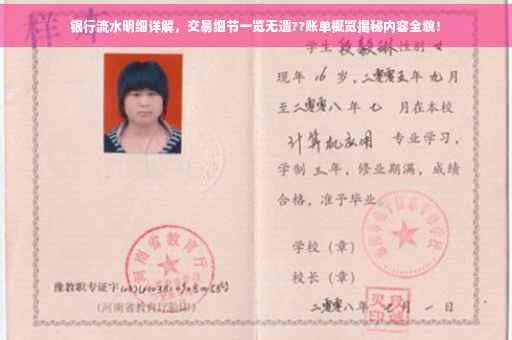 银行流水明细详解，交易细节一览无遗??账单概览揭秘内容全貌！
样本
学生段毅琳性别女
现年16岁，二零零五年九月
至二零零八年七 月在本校
计算机应用 专业学习，
学制三年，修业期满，成绩
合格，准予毕业
学校（章）
校长（章）
二零零八年 月一日
河南省教育厅
豫教职专证字
（河南省教育厅验印）